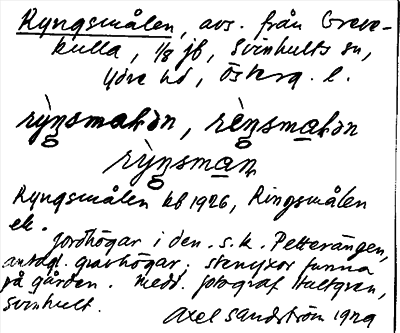 Ryngsmålen, avs. från Greve-
kulla, 1/8 jb, Svinhults sn,
Ydre hd, Österg. l.
rỳŋsmaɫən, rèŋsmaɫən
rỳŋsman
Ryngsmålen kb 1926, Ringsmålen
ek.
Jordhögar i den s.k. Petterängen,
antagl. gravhögar. Stenyxor funna
på gården. Medd. fotograf Hultgren,
Svinhult.
Axel Sandström 1929